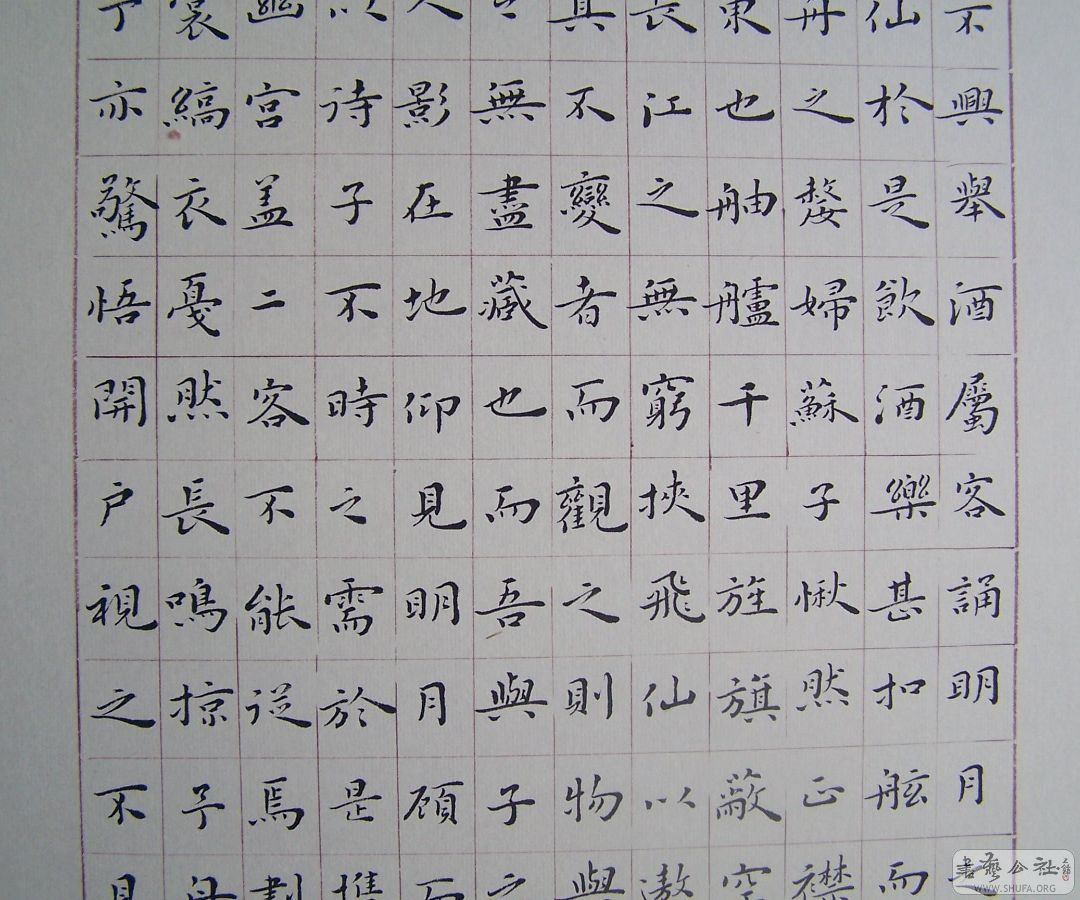 不興舉酒屬客誦明月
仙於是飲酒樂甚扣舷而
舟之嫠婦蘇子愀然正襟
東也舳艫千里旌旗蔽空
長江之無窮挾飛仙以遨
其不變者而觀之則物與
無盡藏也而吾與子之
人影在地仰見明月顧而
以待子不時之需於是攜
幽宮盖二客不能從焉劃
裳縞衣戛然長鳴掠予舟
予亦驚悟開戶視之不見
書藝公社
WWW.SHUFA.ORG